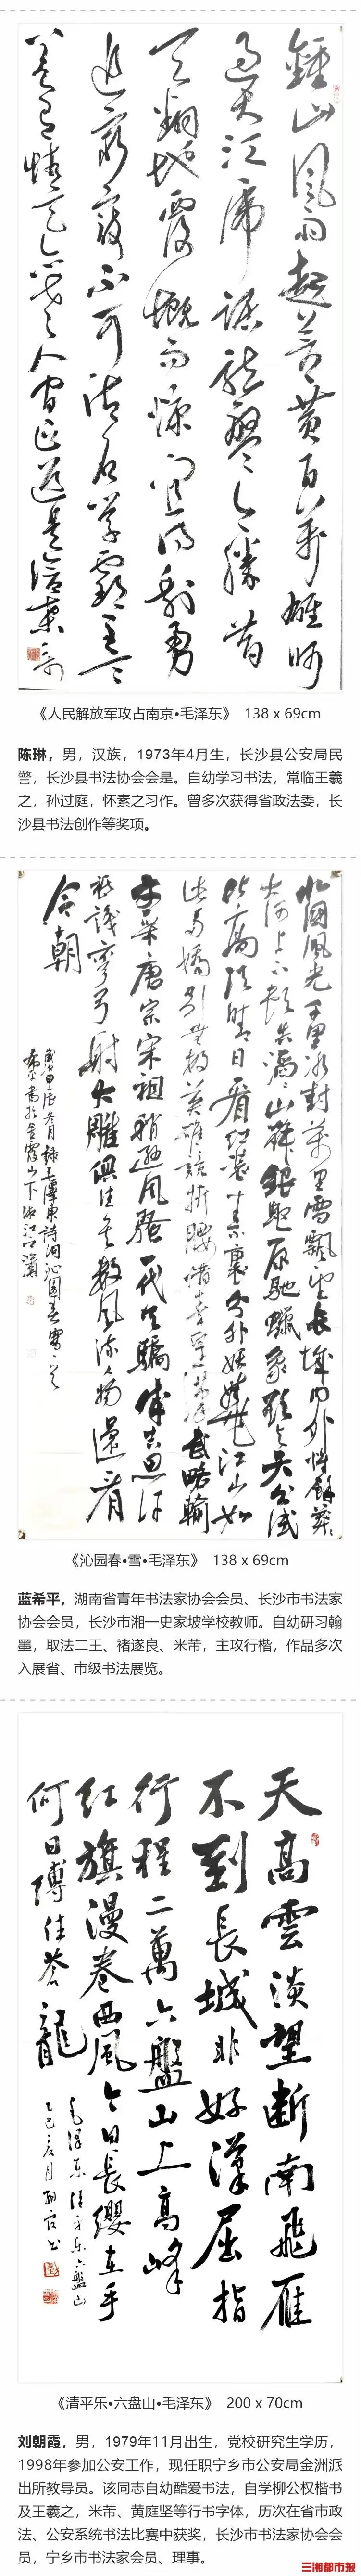 鍾山風雨起蒼黄百萬雄師
過大江虎踞龍盤今勝昔
天翻地覆慨而慷宜将剩勇
追窮寇不可沽名學霸王天
若有情天亦老人間正道是滄桑
《人民解放军攻占南京•毛泽东》 138 x 69cm
陈琳，男，汉族，1973年4月生，长沙县公安局民
警，长沙县书法协会会是。自幼学习书法，常临王羲
之，孙过庭，怀素之习作。曾多次获得省政法委，长
沙县书法创作等奖项。
北國風光千里冰封萬里雪飄望長城内外惟餘莽莽
大河上下頓失滔滔山舞銀蛇原馳蠟象欲與天公試
比高須晴日看紅裝素裹分外妖嬈江山如
此多嬌引無數英雄競折腰惜秦皇漢武略輸
文采唐宗宋祖稍遜風騷一代天驕成吉思汗
祇識彎弓射大雕俱往矣數風流人物還看
今朝
《沁园春•雪•毛泽东》 138 x 69cm
蓝希平，湖南省青年书法家协会会员、长沙市书法家
协会会员，长沙市湘一史家坡学校教师。自幼研习翰
墨，取法二王、褚遂良、米芾，主攻行楷，作品多次
入展省、市级书法展览。
天高雲淡望断南飛雁
不到長城非好漢屈指
行程二萬六盤山上高峰
红旗漫卷西風今日長纓在手
何日縛住蒼龍
毛澤東清平乐六盤山
《清平乐•六盘山•毛泽东》 200 x 70cm
刘朝霞，男，1979年11月出生，党校研究生学历，
1998年参加公安工作，现任职宁乡市公安局金洲派
出所教导员。该同志自幼酷爱书法，自学柳公权楷书
及王羲之，米芾、黄庭坚等行书字体，历次在省市政
法、公安系统书法比赛中获奖，长沙市书法家协会会
员，宁乡市书法家会员、理事。
三湘都市报